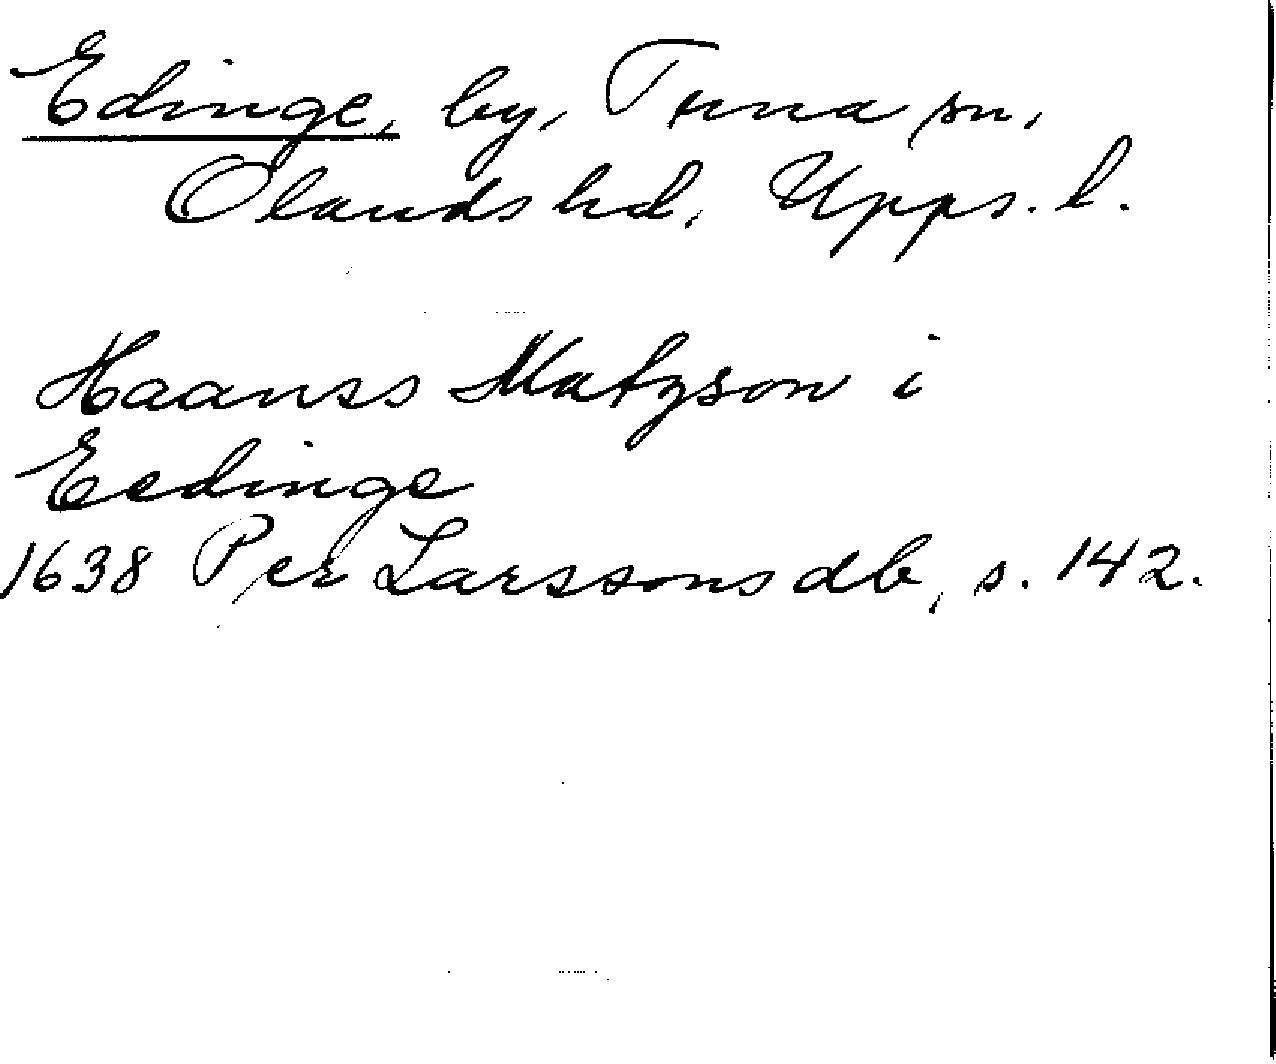 Edinge, by, Tuna sn,
Olands hd, Upps. l.
Haanss Matzson i
Eedinge
1638 Per Larssons db, s. 142.